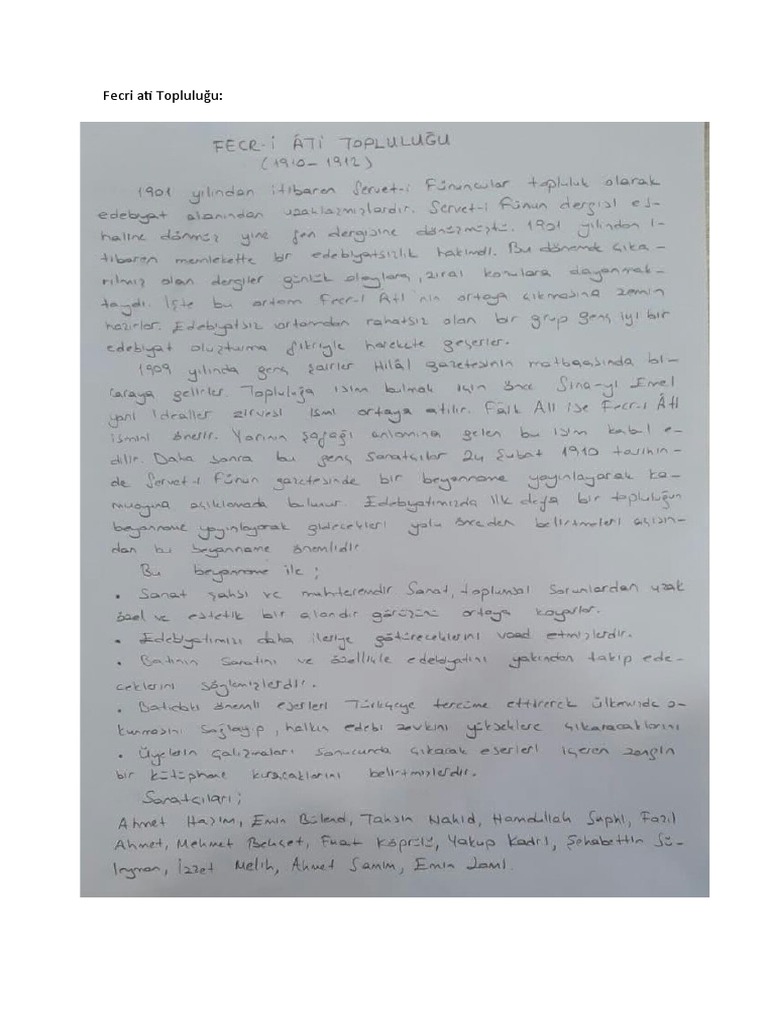 Fecri ati Topluluğu:
FECR-İ ÂTİ TOPLULUĞU
(1910-1912)
1901 yılından itibaren Servet-i Fünuncular topluluk olarak
edebiyat alanından uzaklaşmışlardır. Servet-i Fünun dergisi es-
haline dönmüş yine fen dergisine dönüşmüştü. 1901 yılından i-
tibaren memlekette bir edebiyatsızlık hakimdi. Bu dönemde çıka-
rılmış olan dergiler günlük olaylara, zirai konulara dayanmak-
taydı. İşte bu ortam Fecr-i Ati'nin ortaya çıkmasına zemin
hazırlar. Edebiyatsız ortamdan rahatsız olan bir grup genç iyi bir
edebiyat oluşturma fikriyle harekete geçerler.
1909 yılında genç şairler Hilâl gazetesinin matbaasında bi-
raraya gelirler. Topluluğa isim bulmak için önce Sina-yi Emel
yani idealler zirvesi ismi ortaya atılır. Faik Ali ise Fecr-i Âti
ismini önerir. Yarının şafağı anlamına gelen bu isim kabul e-
dilir. Daha sonra bu genç sanatçılar 24 Şubat 1910 tarihin-
de Servet-i Fünun gazetesinde bir beyanname yayınlayarak ka-
muoyuna açıklamada bulunur. Edebiyatımızda ilk defa bir topluluğun
beyanname yayınlayarak gidecekleri yolu önceden belirtmeleri açısın-
dan bu beyanname önemlidir.
Bu beyanname ile;
• Sanat şahsi ve muhteremdir Sanat, toplumsal sorunlardan uzak
özel ve estetik bir alandır görüşünü ortaya koyarlar.
• Edebiyatımızı daha ileriye götüreceklerini vaad etmişlerdir.
• Batının sanatını ve özellikle edebiyatını yakından takip ede-
ceklerini söylemişlerdir.
• Batıdaki önemli eserleri Türkçeye tercüme ettirerek ülkemizde o-
kunmasını sağlayıp, halkın edebi zevkini yükseklere çıkaracaklarını
• Üyelerin çalışmaları sonucunda çıkarak eserleri içeren zengin
bir kütüphane kuracaklarını belirtmişlerdir.
Sanatçıları;
Ahmet Haşim, Emin Bülend, Tahsin Nahid, Hamdullah Suphi, Fazıl
Ahmet, Mehmet Behçet, Fuat Köprülü, Yakup Kadri, Şehabettin Sü-
leyman, İzzet Melih, Ahmet Samim, Emin Lami.